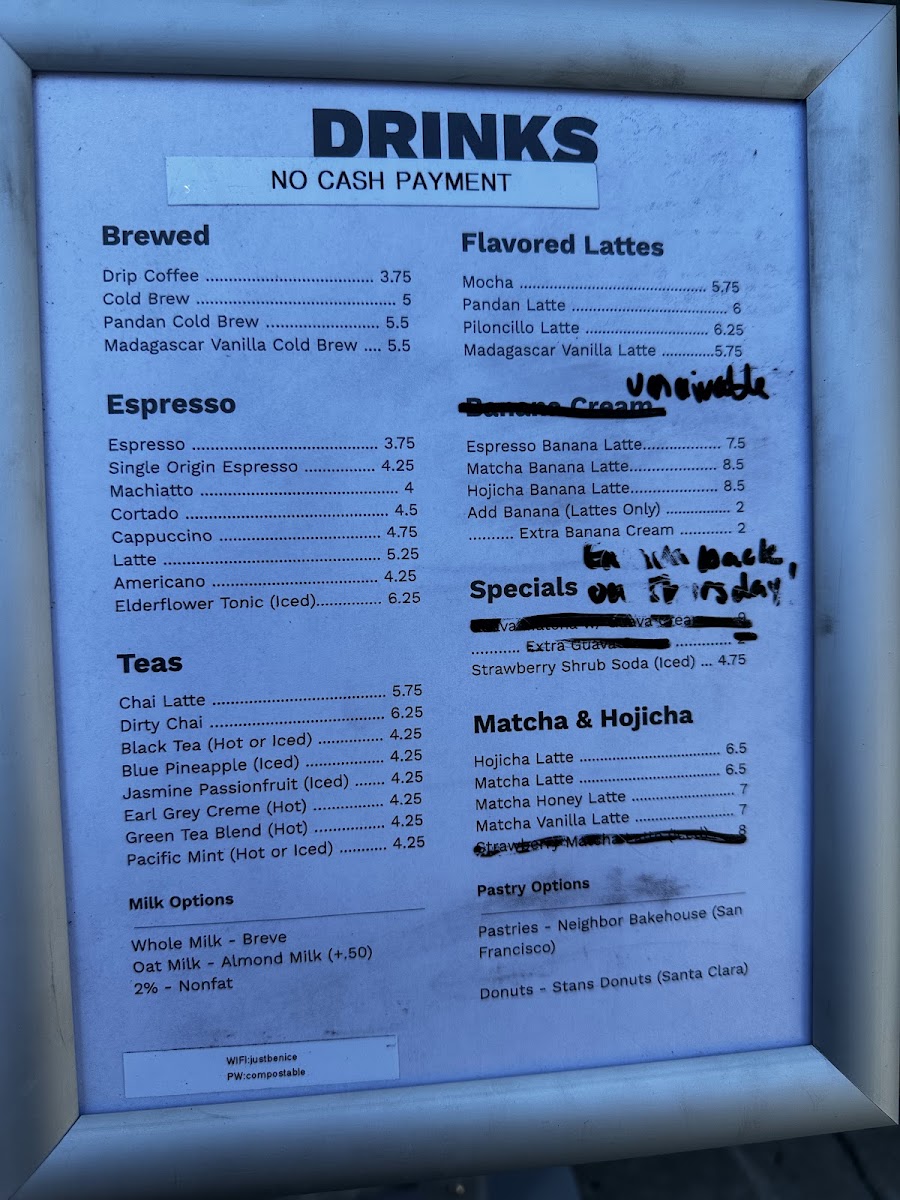 DRINKS
NO CASH PAYMENT
Brewed
Drip Coffee ........ 3.75
Cold Brew ........ 5
Pandan Cold Brew ........ 5.5
Madagascar Vanilla Cold Brew .... 5.5
Espresso
Espresso ........ 3.75
Single Origin Espresso ........ 4.25
Machiatto ........ 4
Cortado ........ 4.5
Cappuccino ........ 4.75
Latte ........ 5.25
Americano ........ 4.25
Elderflower Tonic (Iced)........ 6.25
Teas
Chai Latte ........ 5.75
Dirty Chai ........ 6.25
Black Tea (Hot or Iced) ........ 4.25
Blue Pineapple (Iced) ........ 4.25
Jasmine Passionfruit (Iced) ...... 4.25
Earl Grey Creme (Hot) ........ 4.25
Green Tea Blend (Hot) ........ 4.25
Pacific Mint (Hot or Iced) ........ 4.25
Milk Options
Whole Milk - Breve
Oat Milk - Almond Milk (+.50)
2% - Nonfat
WIFI:justbenice
PW:compostable
Flavored Lattes
Mocha ........ 5.75
Pandan Latte ........ 6
Piloncillo Latte ........ 6.25
Madagascar Vanilla Latte ........5.75
Banana Cream
Espresso Banana Latte........ 7.5
Matcha Banana Latte........ 8.5
Hojicha Banana Latte........ 8.5
Add Banana (Lattes Only) ........ 2
.......... Extra Banana Cream ........ 2
back,
on
Specials
Extra Guava
Strawberry Shrub Soda (Iced) ... 4.75
Matcha & Hojicha
Hojicha Latte ........ 6.5
Matcha Latte ........ 6.5
Matcha Honey Latte ........ 7
Matcha Vanilla Latte ........ 7
Strawberry Matcha 8
Pastry Options
Pastries - Neighbor Bakehouse (San
Francisco)
Donuts - Stans Donuts (Santa Clara)